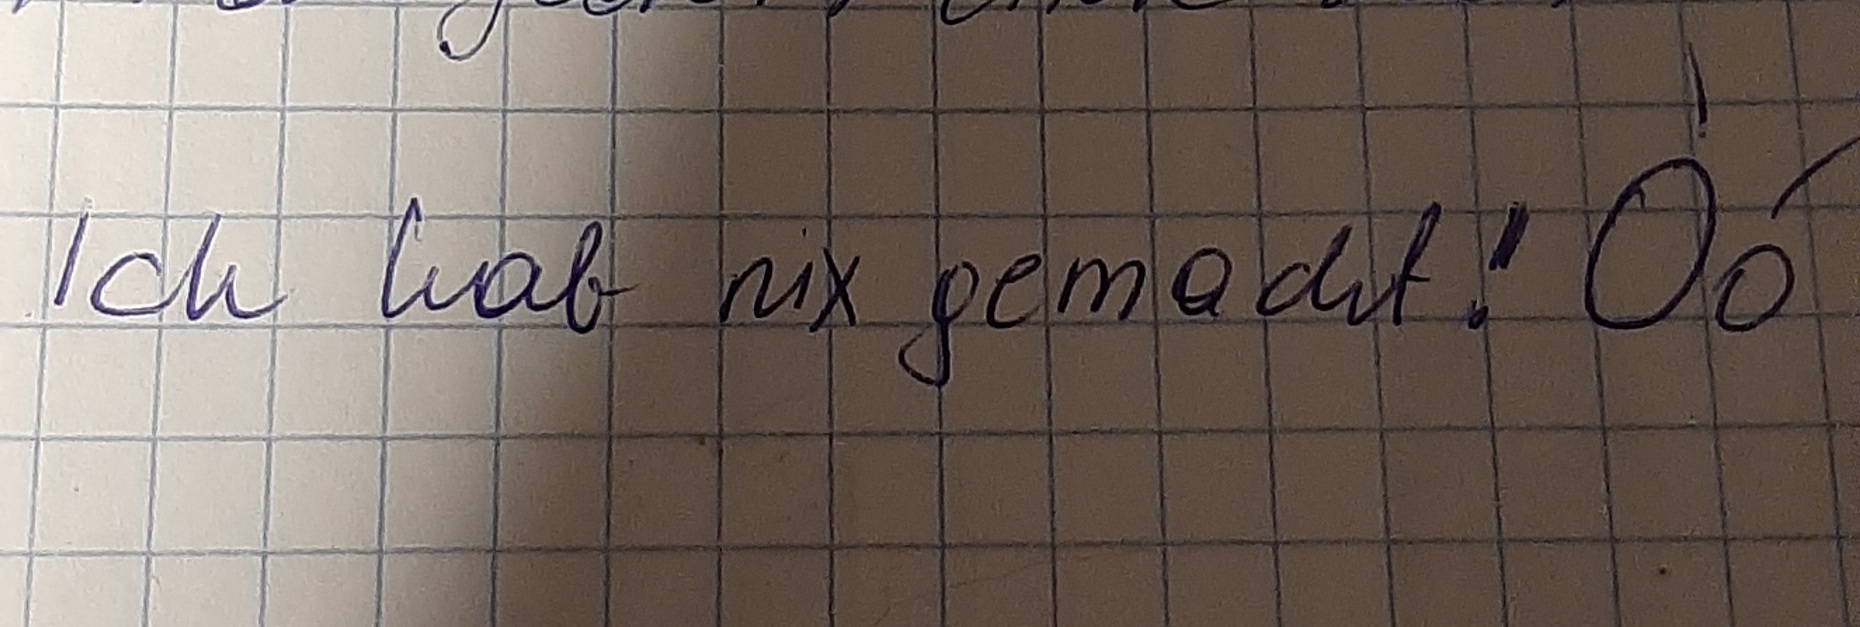 Ich hab nix gemacht! Óó